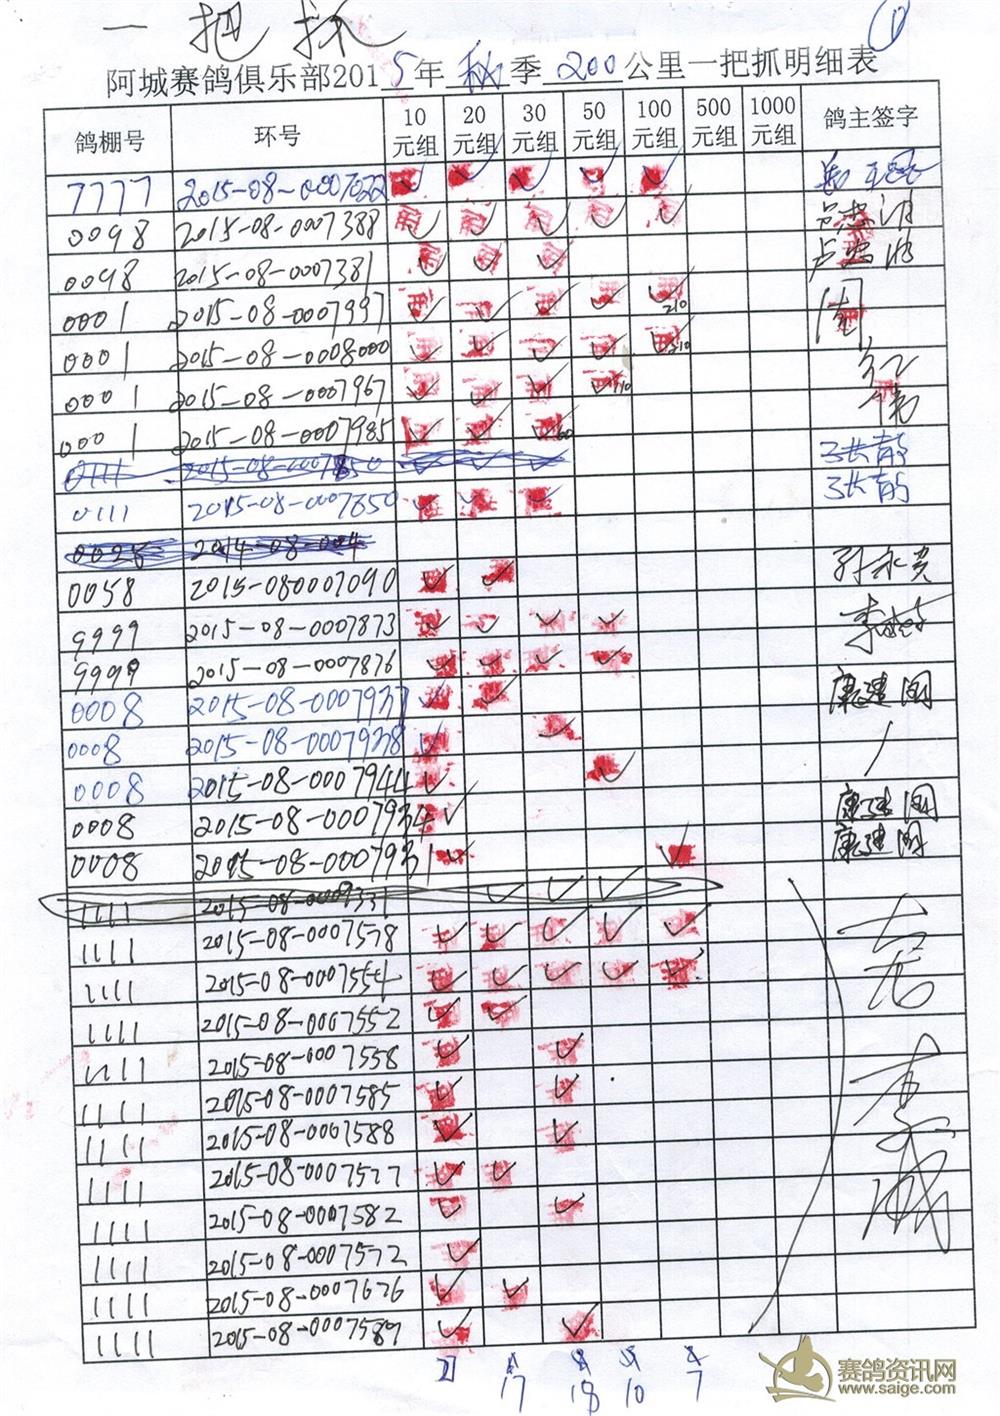 一把抓
①
阿城赛鸽俱乐部2015年秋季200公里一把抓明细表
鸽棚号 环号 10元组 20元组 30元组 50元组 100元组 500元组 1000元组 鸽主签字
7777 2015-08-0007022 ✓ ✓ ✓ ✓ ✓
0098 2015-08-0007388 ✓ ✓ ✓ ✓ ✓
0098 2015-08-0007381 ✓ ✓ ✓
0001 2015-08-0007997 ✓ ✓ ✓ ✓ ✓ 210
0001 2015-08-0008000 ✓ ✓ ✓ ✓ ✓ 210
0001 2015-08-0007967 ✓ ✓ ✓ ✓ 110
0001 2015-08-0007985 ✓ ✓ ✓ 60
0111 2015-08-0007850 ✓ ✓ ✓
0111 2015-08-0007850 ✓ ✓ ✓
0028 2014-08-004
0058 2015-080007090 ✓ ✓ 孙永贵
9999 2015-08-0007873 ✓ ✓ ✓ ✓
9999 2015-08-0007876 ✓ ✓ ✓ ✓
0008 2015-08-0007937 ✓ ✓ 康建国
0008 2015-08-0007938 ✓ ✓
0008 2015-08-0007944 ✓ ✓
0008 2015-08-0007934 ✓ 康建国
0008 2015-08-0007931 ✓ ✓ 康建国
1111 2015-08-0009331 ✓ ✓ ✓
1111 2015-08-0007578 ✓ ✓ ✓ ✓ ✓
1111 2015-08-0007554 ✓ ✓ ✓ ✓ ✓
1111 2015-08-0007552 ✓ ✓
1111 2015-08-0007558 ✓ ✓
1111 2015-08-0007585 ✓ ✓
1111 2015-08-0007588 ✓ ✓
1111 2015-08-0007577 ✓ ✓
1111 2015-08-0007582 ✓ ✓
1111 2015-08-0007572 ✓
1111 2015-08-0007626 ✓ ✓
1111 2015-08-0007587 ✓ ✓
17 18 10 7
赛鸽资讯网
www.saige.com